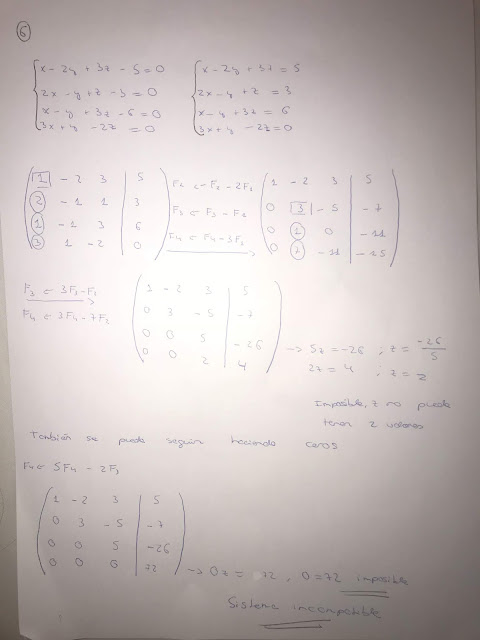 6
x - 2y + 3z - 5 = 0
2x - y + z - 3 = 0
x - y + 3z - 6 = 0
3x + y - 2z = 0
x - 2y + 3z = 5
2x - y + z = 3
x - y + 3z = 6
3x + y - 2z = 0
1 -2 3 | 5
2 -1 1 | 3
1 -1 3 | 6
3 1 -2 | 0
F2 ← F2 - 2F1
F3 ← F3 - F1
F4 ← F4 - 3F1
1 -2 3 | 5
0 3 -5 | -7
0 1 0 | -11
0 7 -11 | -15
F3 ← 3F3 - F2
F4 ← 3F4 - 7F2
1 -2 3 | 5
0 3 -5 | -7
0 0 5 | -26
0 0 2 | 4
→ 5z = -26 ; z = -26/5
2z = 4 ; z = 2
Imposible, z no puede
tener 2 valores
También se puede seguir haciendo ceros
F4 ← 5F4 - 2F3
1 -2 3 | 5
0 3 -5 | -7
0 0 5 | -26
0 0 0 | 72
→ 0z = 72 , 0 = 72 imposible
Sistema incompatible